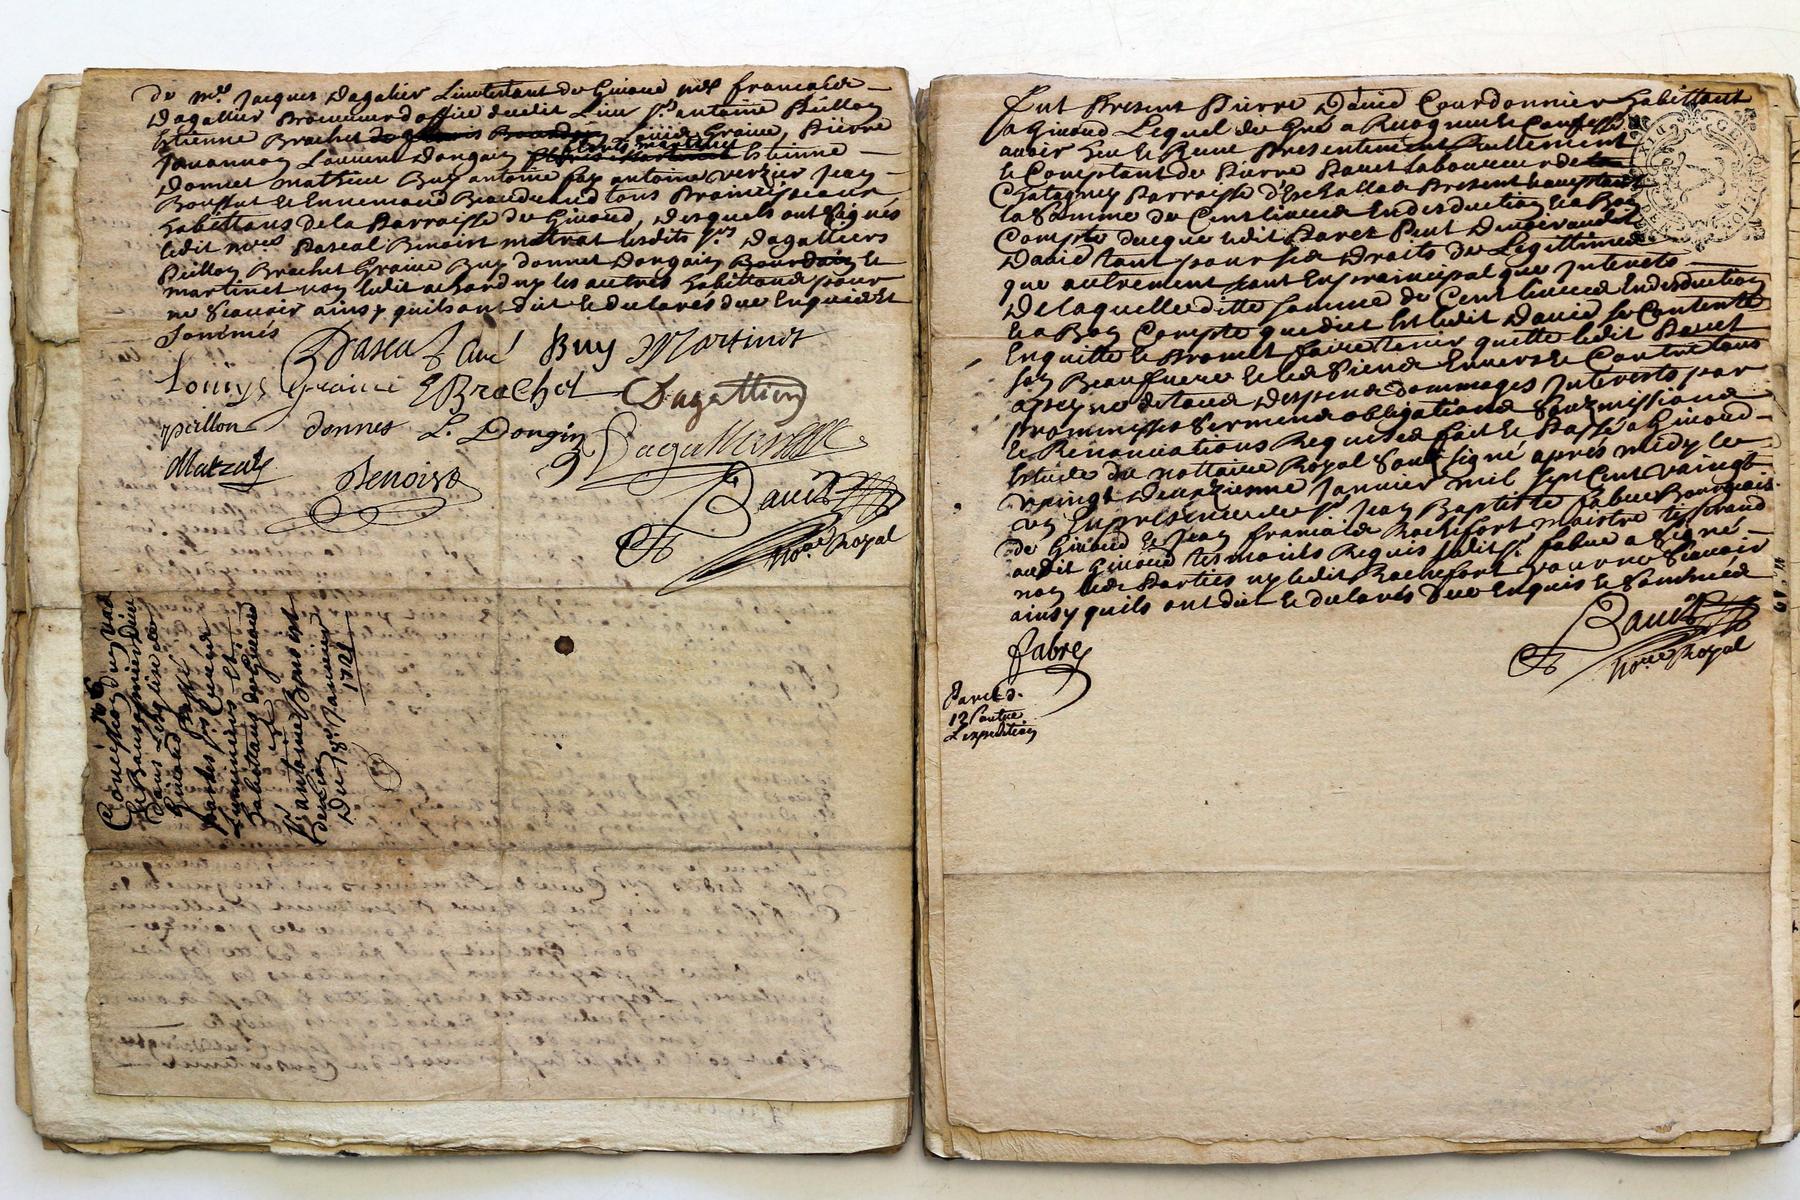 de Mre Jacques Dagalier Lieutenant de Givord Mre francois
Dagallier Procureur d'office dudit Lieu Sr antoine Peillon
Etienne Brachet Louis Graine, Pierre
Laurent Dongain Etienne
Donnet Mathieu Buy antoine antoine Verzur Jean
Boussut et Ennemond tous Principeaux
habittans de la Parroisse de Givord, desquels ont signés
ledit Pascal Benoist Matrat lesdits Srs Dagalliers
Peillon Brachet Graine Buy Donnet Dongain Bourdain et
Martinet non ledit ny les autres habittans pour
ne Scavoir ainsy quils ont dit et declarés de ce Enquis et
Sommés
Pascal Curé Buy Martinet
Louys Graine E Brachet Dagallier
peillon donnet L. Dongin Dagallier
Matrat Benoist
Bauet
Nore Royal
Concession d'un
banc
dans L'eglise de
Givord
par les Srs Curé
Luminiers et
habitans de Givord
a
Sr antoine Benoist
de Lion
Du 18e Janvier
1721
Fut Present Pierre David Courdonnier habittant
a Givord Lequel de Gré a Recognu et Confessé
avoir heu et Receu Presentement Reellement
et Comptant de Pierre Pavet Laboureur de
Chatagney Parroisse d'Eschallas Present
la Somme de Cent livres En deduction et a Bon
Compte de ce que ledit Pavet Peut Devoir audit
David tant pour ses Droits de Legittimes
que autrement tant En Principal que Interets
De laquelle ditte Somme de Cent livres En deduction
et a Bon Compte que dict Est ledit David Se Contente
En quitte et Promet faire tenir quitte ledit Pavet
son Beaufrere et les Siens Envers et Contre tous
a peyne de tous despens dommages Interests par
promisses Serment obligations Soubzmissions
et Renonciations Requises fait et Passé a Givord
Estude du nottaire Royal Soubsigné après midy le
vaingt deuxzienne Janvier mil sept Cent vaingt
un En presence de Sr Jean Baptiste fabre Bourgeois
de Givord et Jean francois Rochefort maistre tisserand
audit Givord tesmoins Requis ledit Sr fabre a Signé
non les Parties ny ledit Rochefort pour ne Scavoir
ainsy quils ont dit et declarés de ce Enquis et Sommés
Fabre
Bauet
Nore Royal
Pavet d.
12 s outre
L'expedition